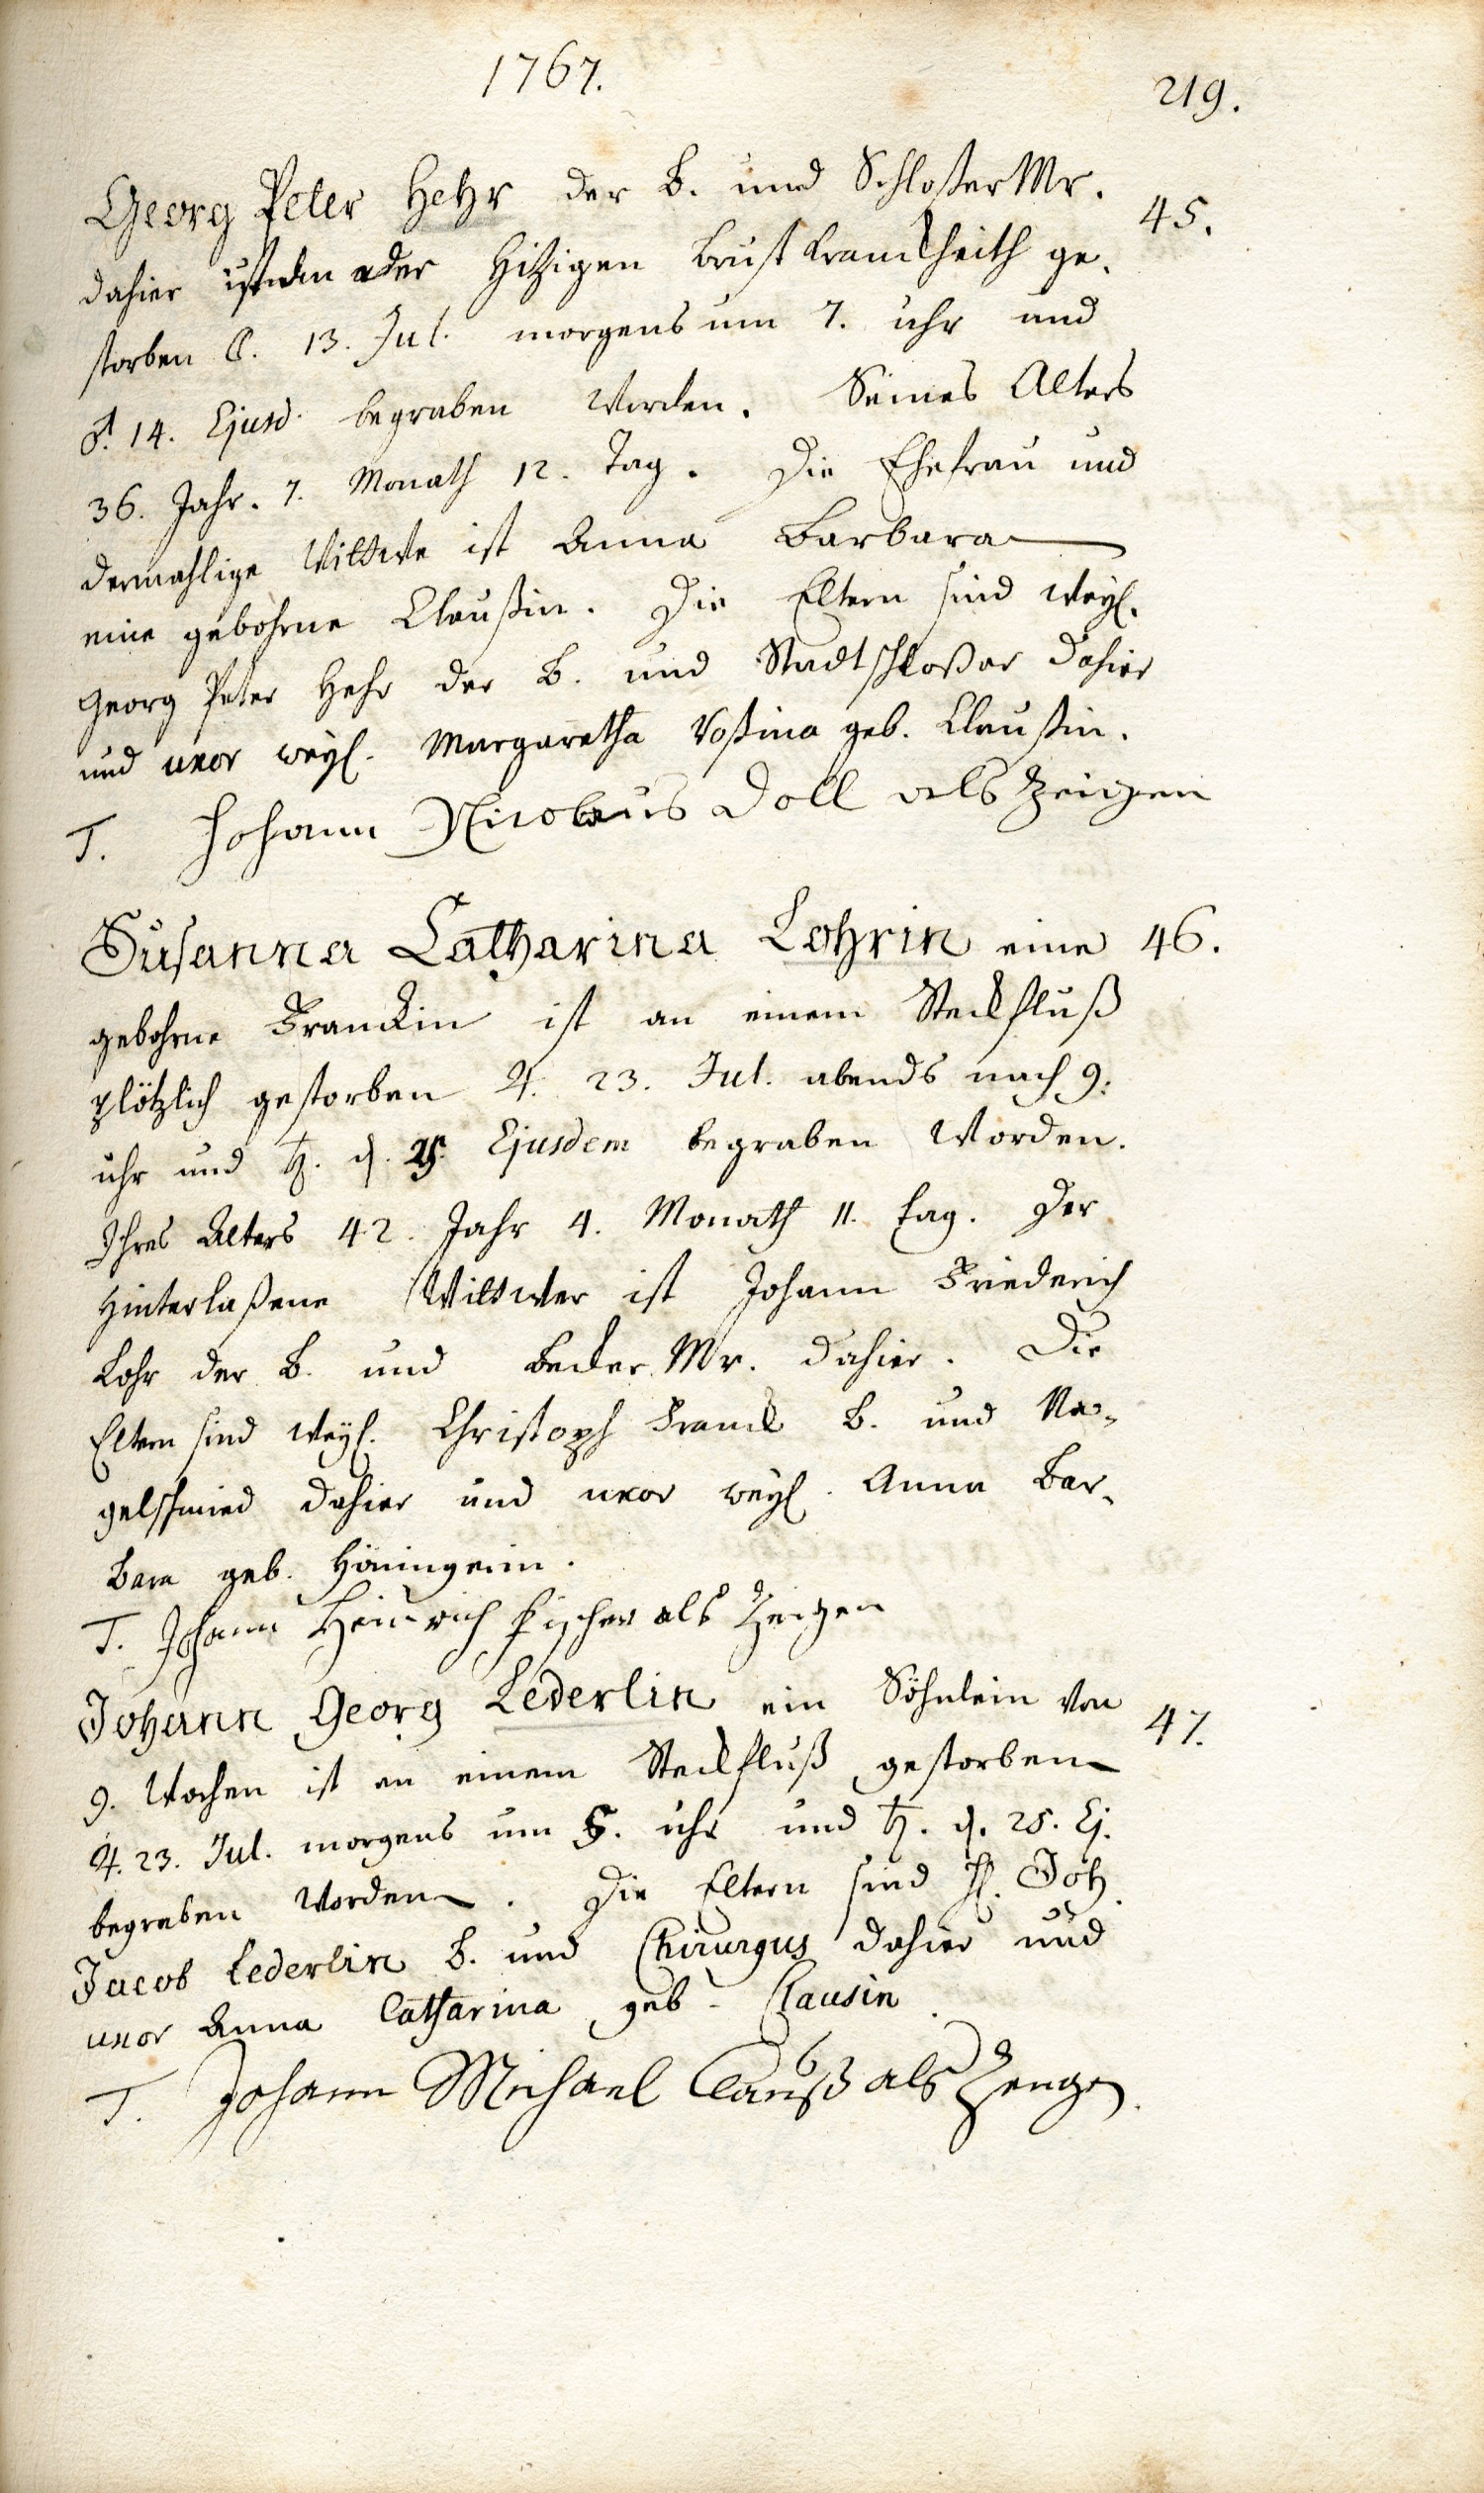 1767.
219.
Georg Peter Hehr der B. und Schloßer Mr. 45.
dahier ist an der Hitzigen Brust Kranckheith ge-
storben ☾. 13. Jul. morgens um 7. uhr und
♂. 14. Ejusd. begraben worden. Seines Alters
36. Jahr. 7. Monath 12. Tag. Die Ehefrau und
dermahlige Wittwe ist Anna Barbara
eine gebohrne Claußin. Die Eltern sind weyl.
Georg Peter Hehr der B. und Stadtschloßer dahier
und uxor weyl. Margaretha Rosina geb. Claußin.
T. Johann Nicolaus Doll als Zeigen
Susanna Catharina Lohrin eine 46.
gebohrne Franckin ist an einem Steckfluß
plötzlich gestorben ♃. 23. Jul. abends nach 9.
uhr und ♄. d. 25. Ejusdem begraben worden.
Ihres Alters 42. Jahr 4. Monath 11. tag. Der
Hinterlaßene Wittwer ist Johann Friederich
Lohr der B. und Becker Mr. dahier. Die
Eltern sind weyl. Christoph Franck B. und Na-
gelschmied dahier und uxor weyl. Anna Bar-
bara geb.
T. Johann Heinrich Fischer als Zeigen
Johann Georg Lederlin ein Söhnlein von 47.
9. Wochen ist an einem Steckfluß gestorben
♃. 23. Jul. morgens um 5. uhr und ♄. d. 25. Ej.
begraben worden. Die Eltern sind H. Joh.
Jacob Lederlin B. und Chirurgus dahier und
uxor Anna Catharina geb. Clausin.
T. Johann Michael Clauß als Zeuge.